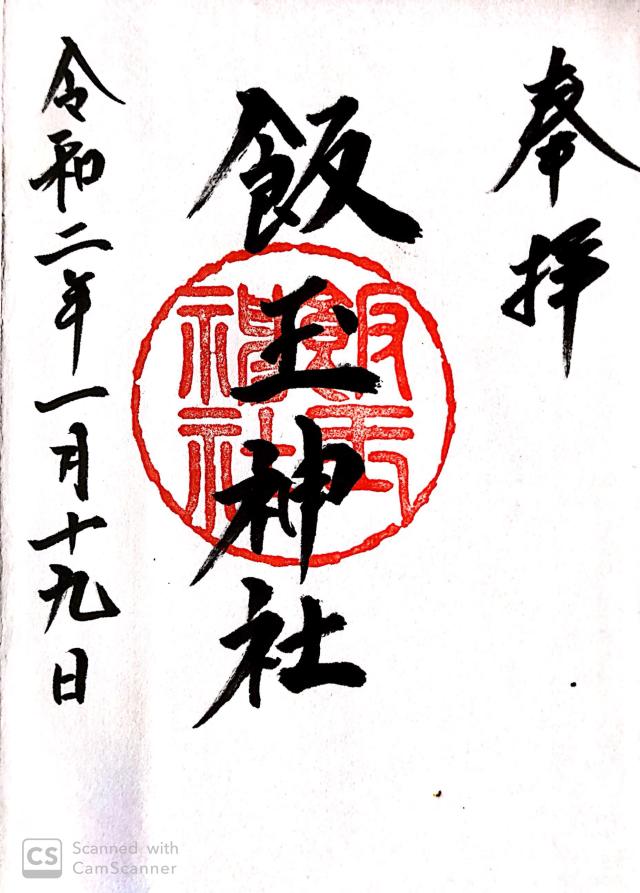 奉拝
飯玉神社
飯玉
神社
令和二年一月十九日
CS Scanned with
CamScanner